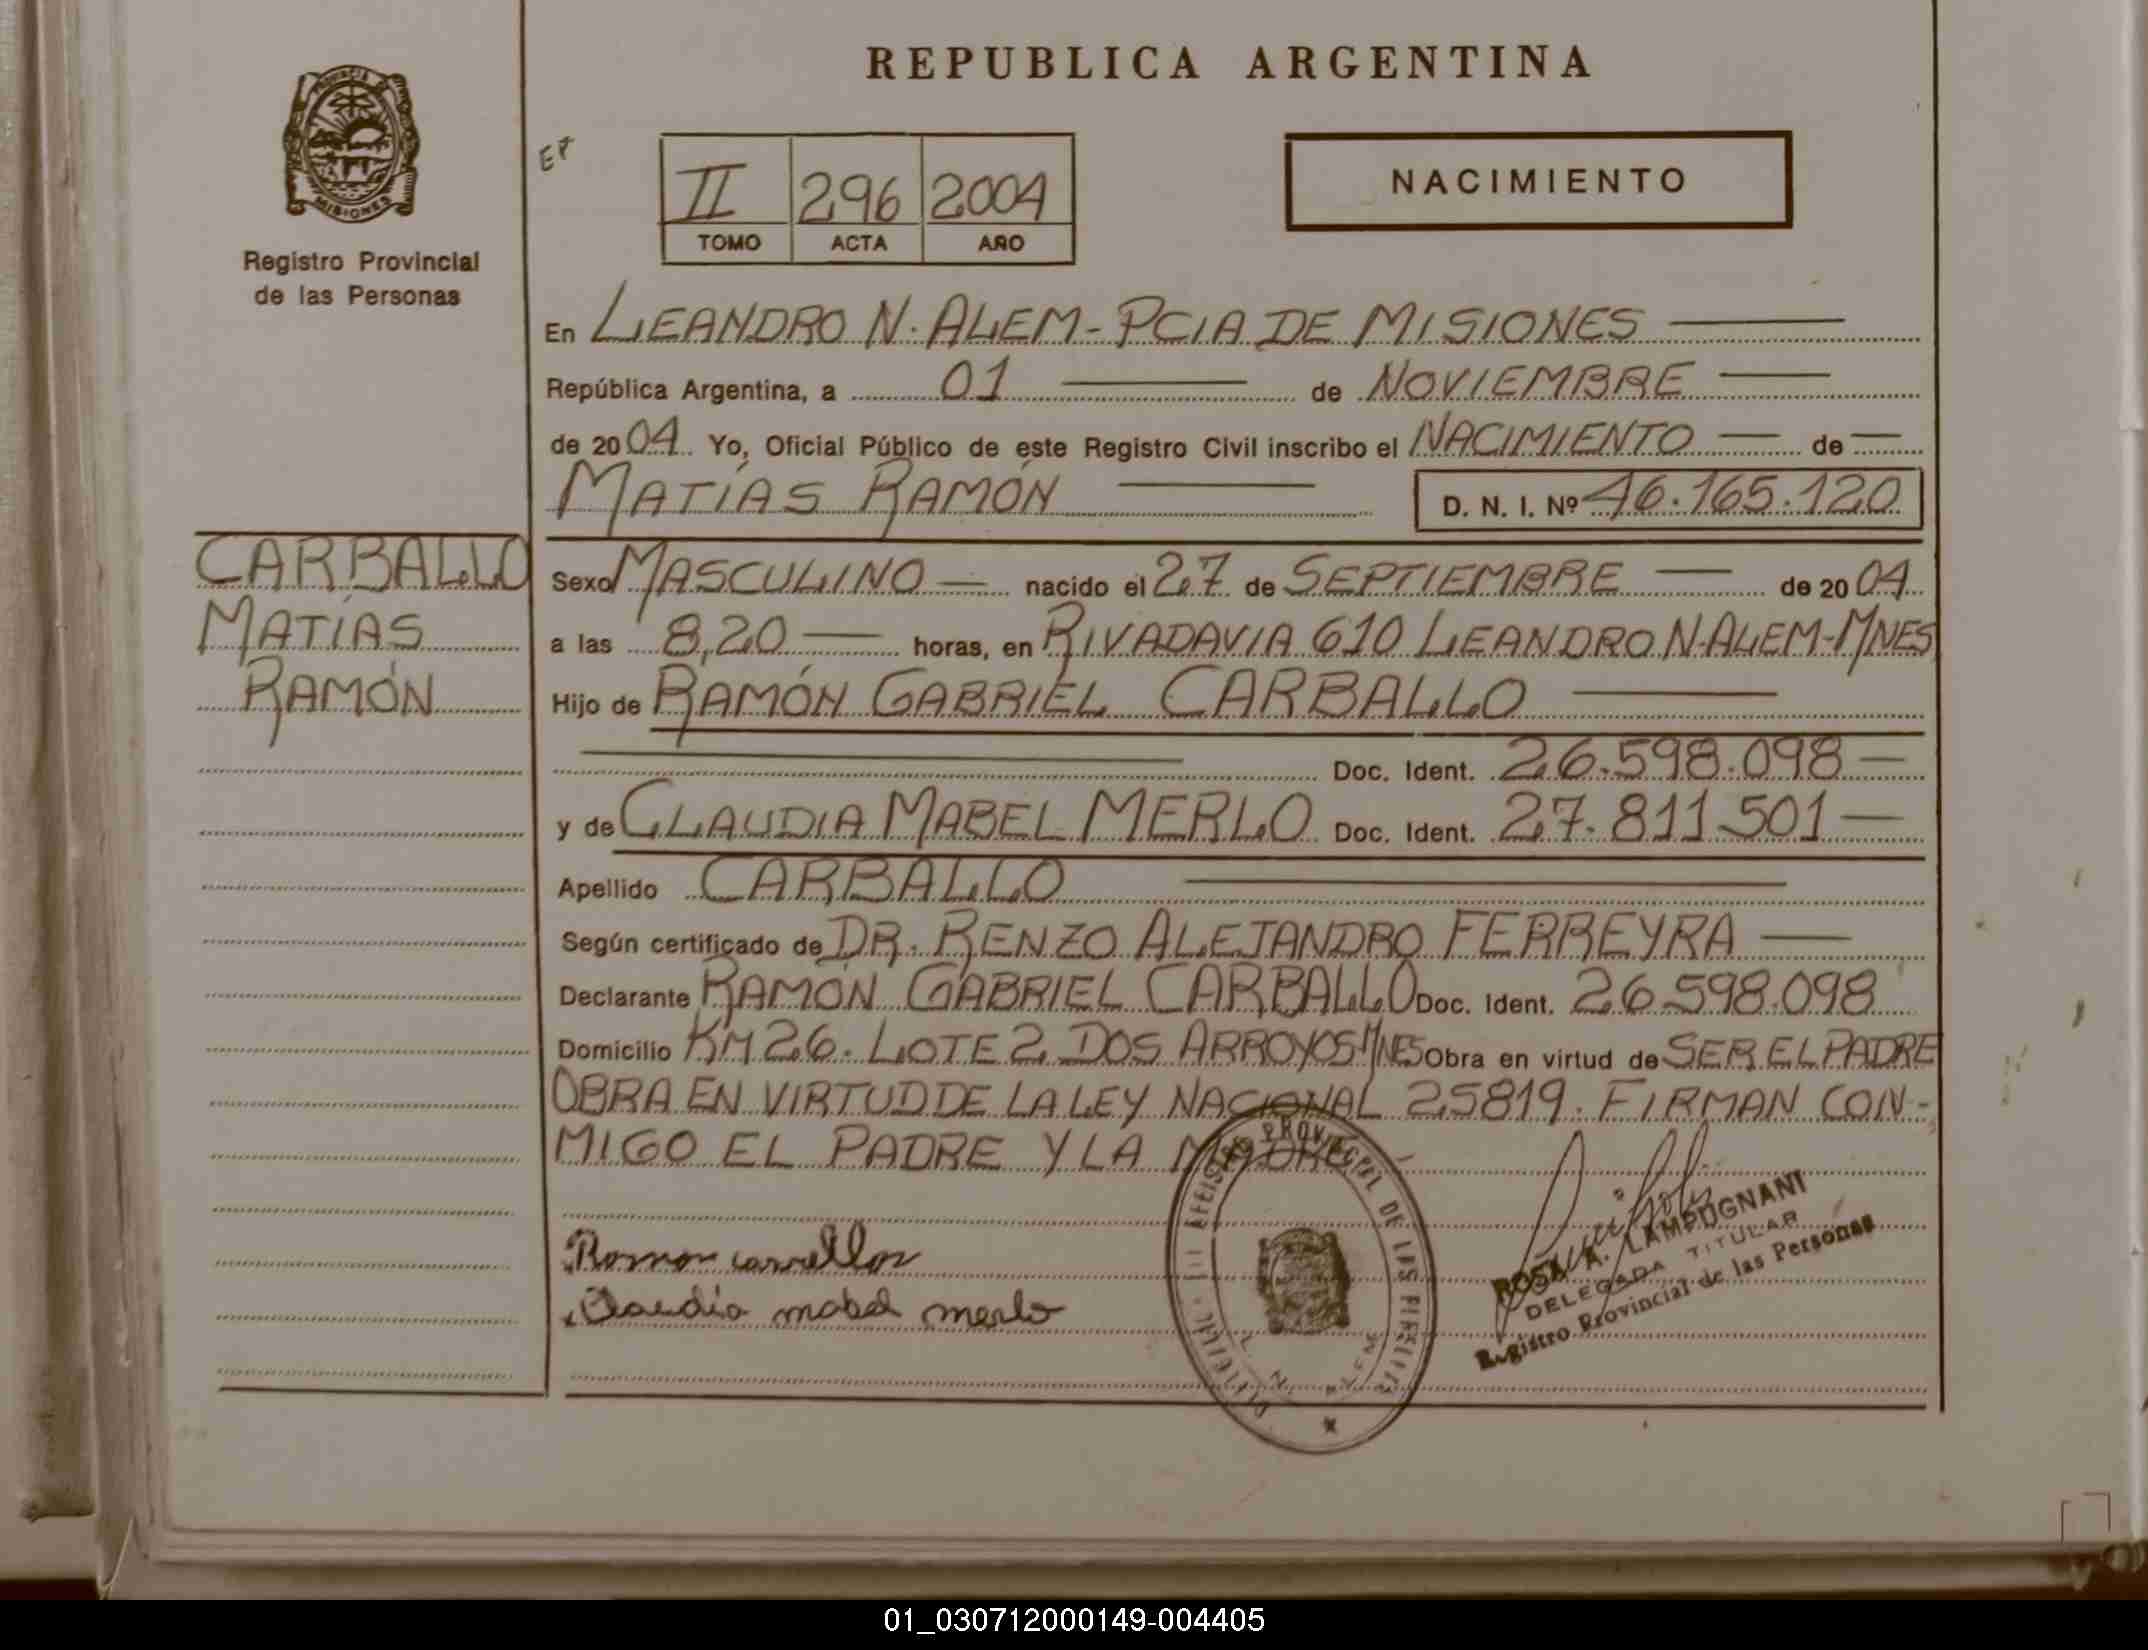 REPUBLICA ARGENTINA
PROVINCIA DE
MISIONES
Registro Provincial
de las Personas
II 296 2004
TOMO ACTA AÑO
NACIMIENTO
En LEANDRO N. ALEM - PCIA DE MISIONES
República Argentina, a 01 de NOVIEMBRE
de 2004 Yo, Oficial Público de este Registro Civil inscribo el NACIMIENTO de
MATÍAS RAMÓN D. N. I. Nº 46.165.120
CARBALLO
MATÍAS
RAMÓN
Sexo MASCULINO nacido el 27 de SEPTIEMBRE de 2004
a las 8,20 horas, en RIVADAVIA 610 LEANDRO N. ALEM-MNES
Hijo de RAMÓN GABRIEL CARBALLO
Doc. Ident. 26.598.098
y de CLAUDIA MABEL MERLO Doc. Ident. 27.811.501
Apellido CARBALLO
Según certificado de DR. RENZO ALEJANDRO FERREYRA
Declarante RAMÓN GABRIEL CARBALLO Doc. Ident. 26.598.098
Domicilio KM 26. LOTE 2 DOS ARROYOS MNES Obra en virtud de SER EL PADRE
OBRA EN VIRTUD DE LA LEY NACIONAL 25819. FIRMAN CON-
MIGO EL PADRE Y LA MADRE
PROVINCIAL DE LAS
Ramon
Claudia mabel merlo
ROSA A. LAMPUGNANI
DELEGADA TITULAR
Registro Provincial de las Personas
01_030712000149-004405